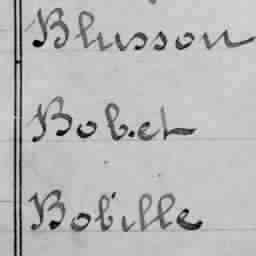 Blusson
Bobet
Bobille